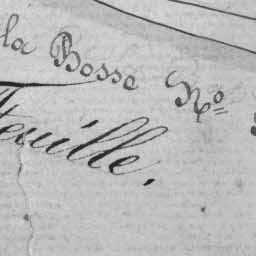 la Bosse No
Feuille.